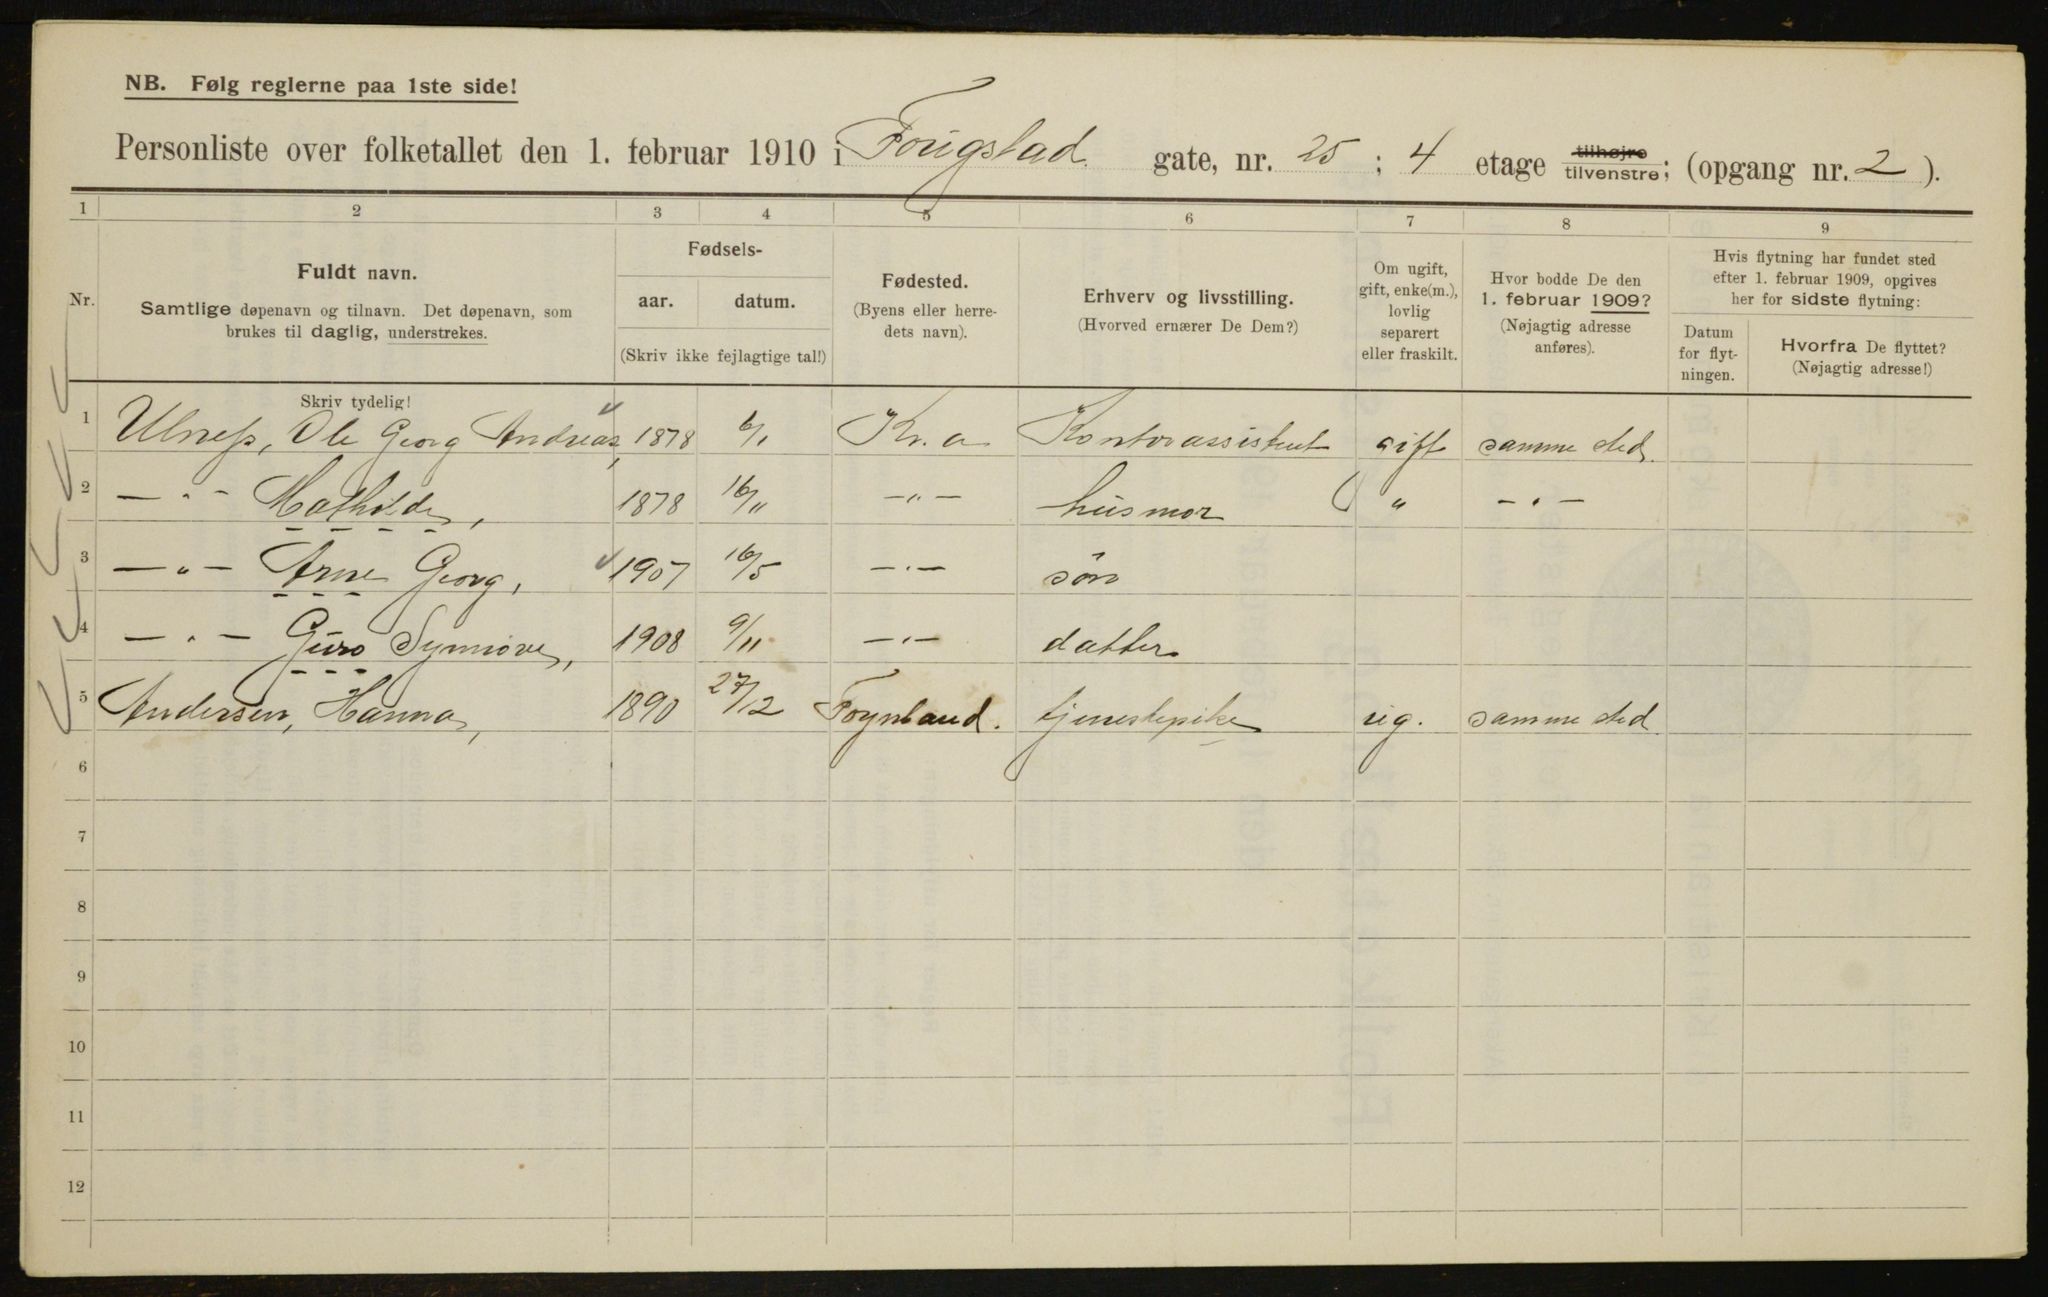 NB. Følg reglerne paa 1ste side!
Personliste over folketallet den 1. februar 1910 i Fougstad gate, nr. 25 ; 4 etage tilhøjre tilvenstre; (opgang nr. 2 ).
1 2 3 4 5 6 7 8 9
Nr.
Fuldt navn.
Samtlige døpenavn og tilnavn. Det døpenavn, som
brukes til daglig, understrekes.
Fødsels-
aar. datum.
(Skriv ikke fejlagtige tal!)
Fødested.
(Byens eller herre-
dets navn).
Erhverv og livsstilling.
(Hvorved ernærer De Dem?)
Om ugift,
gift, enke(m.),
lovlig
separert
eller fraskilt.
Hvor bodde De den
1. februar 1909?
(Nøjagtig adresse
anføres).
Hvis flytning har fundet sted
efter 1. februar 1909, opgives
her for sidste flytning:
Datum
for flyt-
ningen.
Hvorfra De flyttet?
(Nøjagtig adresse!)
Skriv tydelig!
1 Ulness, Ole Georg Andreas, 1878 6/1 Kr.a Kontorassistent gift samme sted.
2 — " — Mathilde, 1878 16/11 — " — husmor " — " —
3 — " — Arne Georg, 1907 16/5 — " — søn
4 — " — Guro Synnøve, 1908 9/11 — " — datter
5 Andersen, Hanna, 1890 27/12 Foynland. tjenestepike ug. samme sted
6
7
8
9
10
11
12